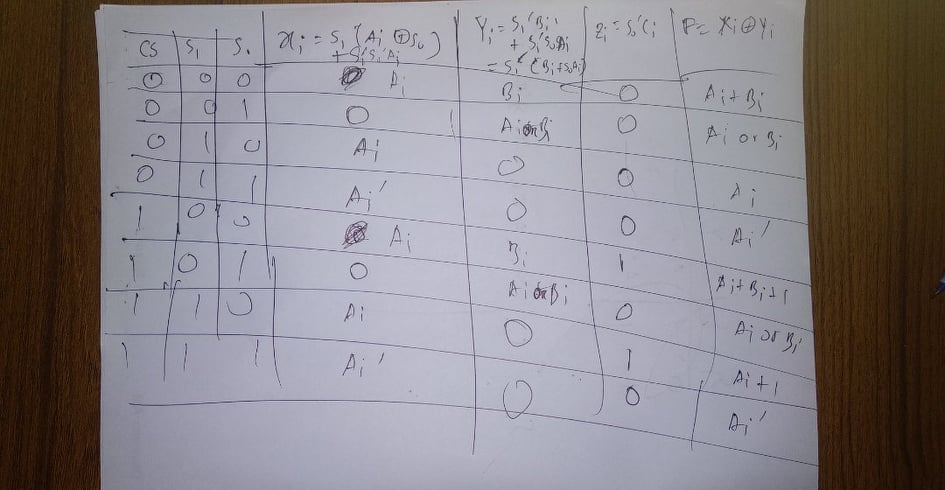 CS S₁ S₀ xᵢ = S₁ (Aᵢ ⊕ S₀) + S₁'S₀'Aᵢ Yᵢ = S₁'Bᵢ + S₁'S₀Aᵢ = S₁' (Bᵢ+S₀Aᵢ) Zᵢ = S₀'Cᵢ F = Xᵢ ⊕ Yᵢ
0 0 0 Aᵢ Bᵢ 0 Aᵢ + Bᵢ
0 0 1 0 Aᵢ or Bᵢ 0 Aᵢ or Bᵢ
0 1 0 Aᵢ 0 0 Aᵢ
0 1 1 Aᵢ' 0 0 Aᵢ'
1 0 0 Aᵢ Bᵢ 1 Aᵢ + Bᵢ + 1
1 0 1 0 Aᵢ or Bᵢ 0 Aᵢ or Bᵢ
1 1 0 Aᵢ 0 1 Aᵢ + 1
1 1 1 Aᵢ' 0 0 Aᵢ'